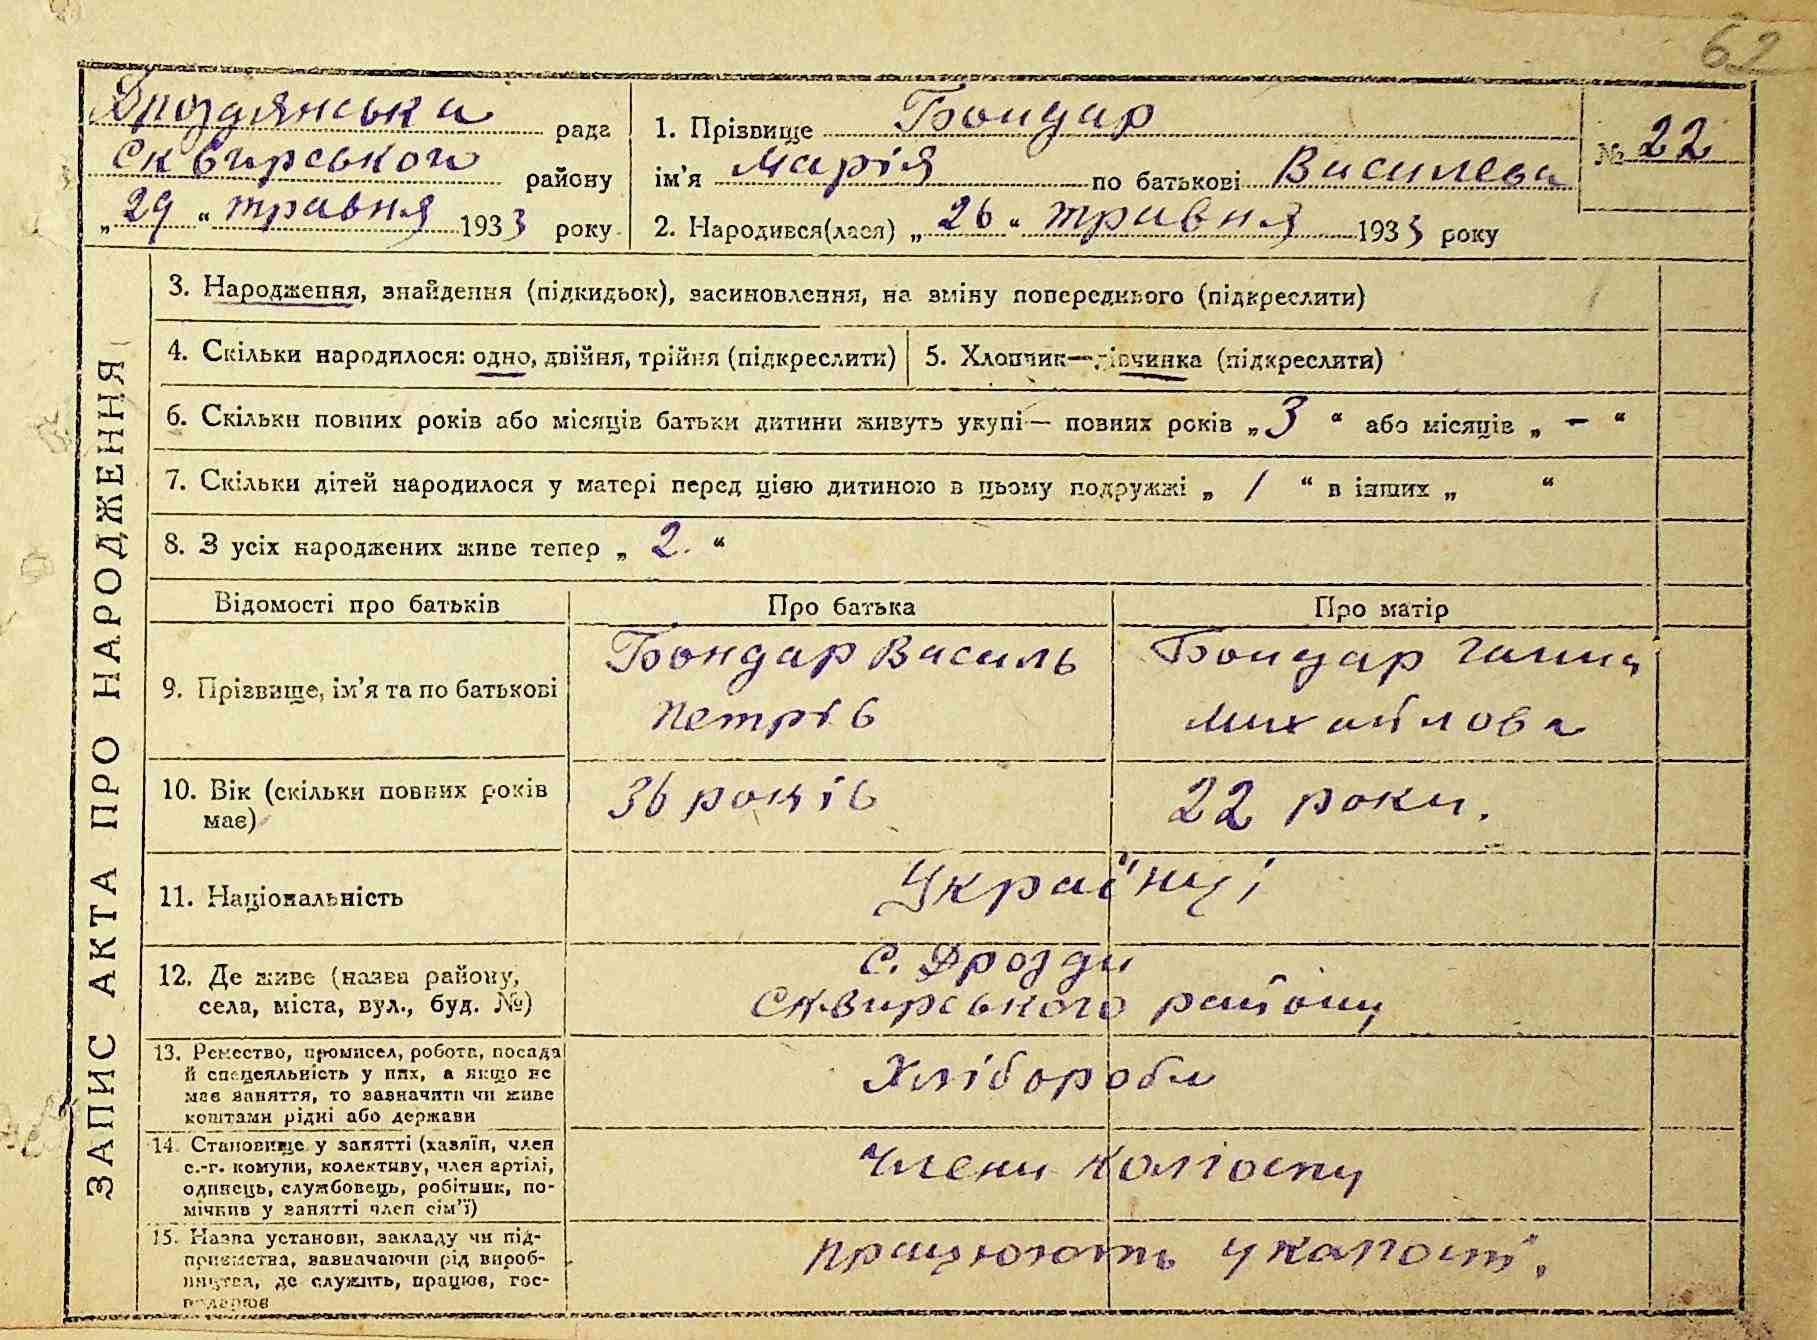 62
Дроздянська рада
Сквирського району
„29“ травня 1933 року
1. Прізвище Бондар
ім’я Марія по батькові Василева
№ 22
2. Народився(лася) „26“ травня 1933 року
ЗАПИС АКТА ПРО НАРОДЖЕННЯ
3. Народження, знайдення (підкидьок), засиновлення, на зміну попереднього (підкреслити)
4. Скільки народилося: одно, двійня, трійня (підкреслити) 5. Хлопчик—дівчинка (підкреслити)
6. Скільки повних років або місяців батьки дитини живуть укупі— повних років „3“ або місяців „-“
7. Скільки дітей народилося у матері перед цією дитиною в цьому подружжі „1“ в інших „ “
8. З усіх народжених живе тепер „2.“
Відомості про батьків Про батька Про матір
9. Прізвище, ім’я та по батькові
Бондар Василь
Петрів
Бондар Ганна
Михайлова
10. Вік (скільки повних років
має)
36 років
22 роки.
11. Національність
Українці
12. Де живе (назва району,
села, міста, вул., буд. №)
с. Дрозди
Сквирського району
13. Ремество, промисел, робота, посада
й спецеяльність у них, а якщо не
має заняття, то зазначити чи живе
коштами рідні або держави
Хлібороби
14. Становище у занятті (хазяїн, член
с.-г. комуни, колективу, член артілі,
одинець, службовець, робітник, по-
мічник у занятті член сім’ї)
Члени колгоспу
15. Назва установи, закладу чи під-
приємства, зазначаючи рід вироб-
ництва, де служить, працює, гос-
подарює
працюють у колгоспі.